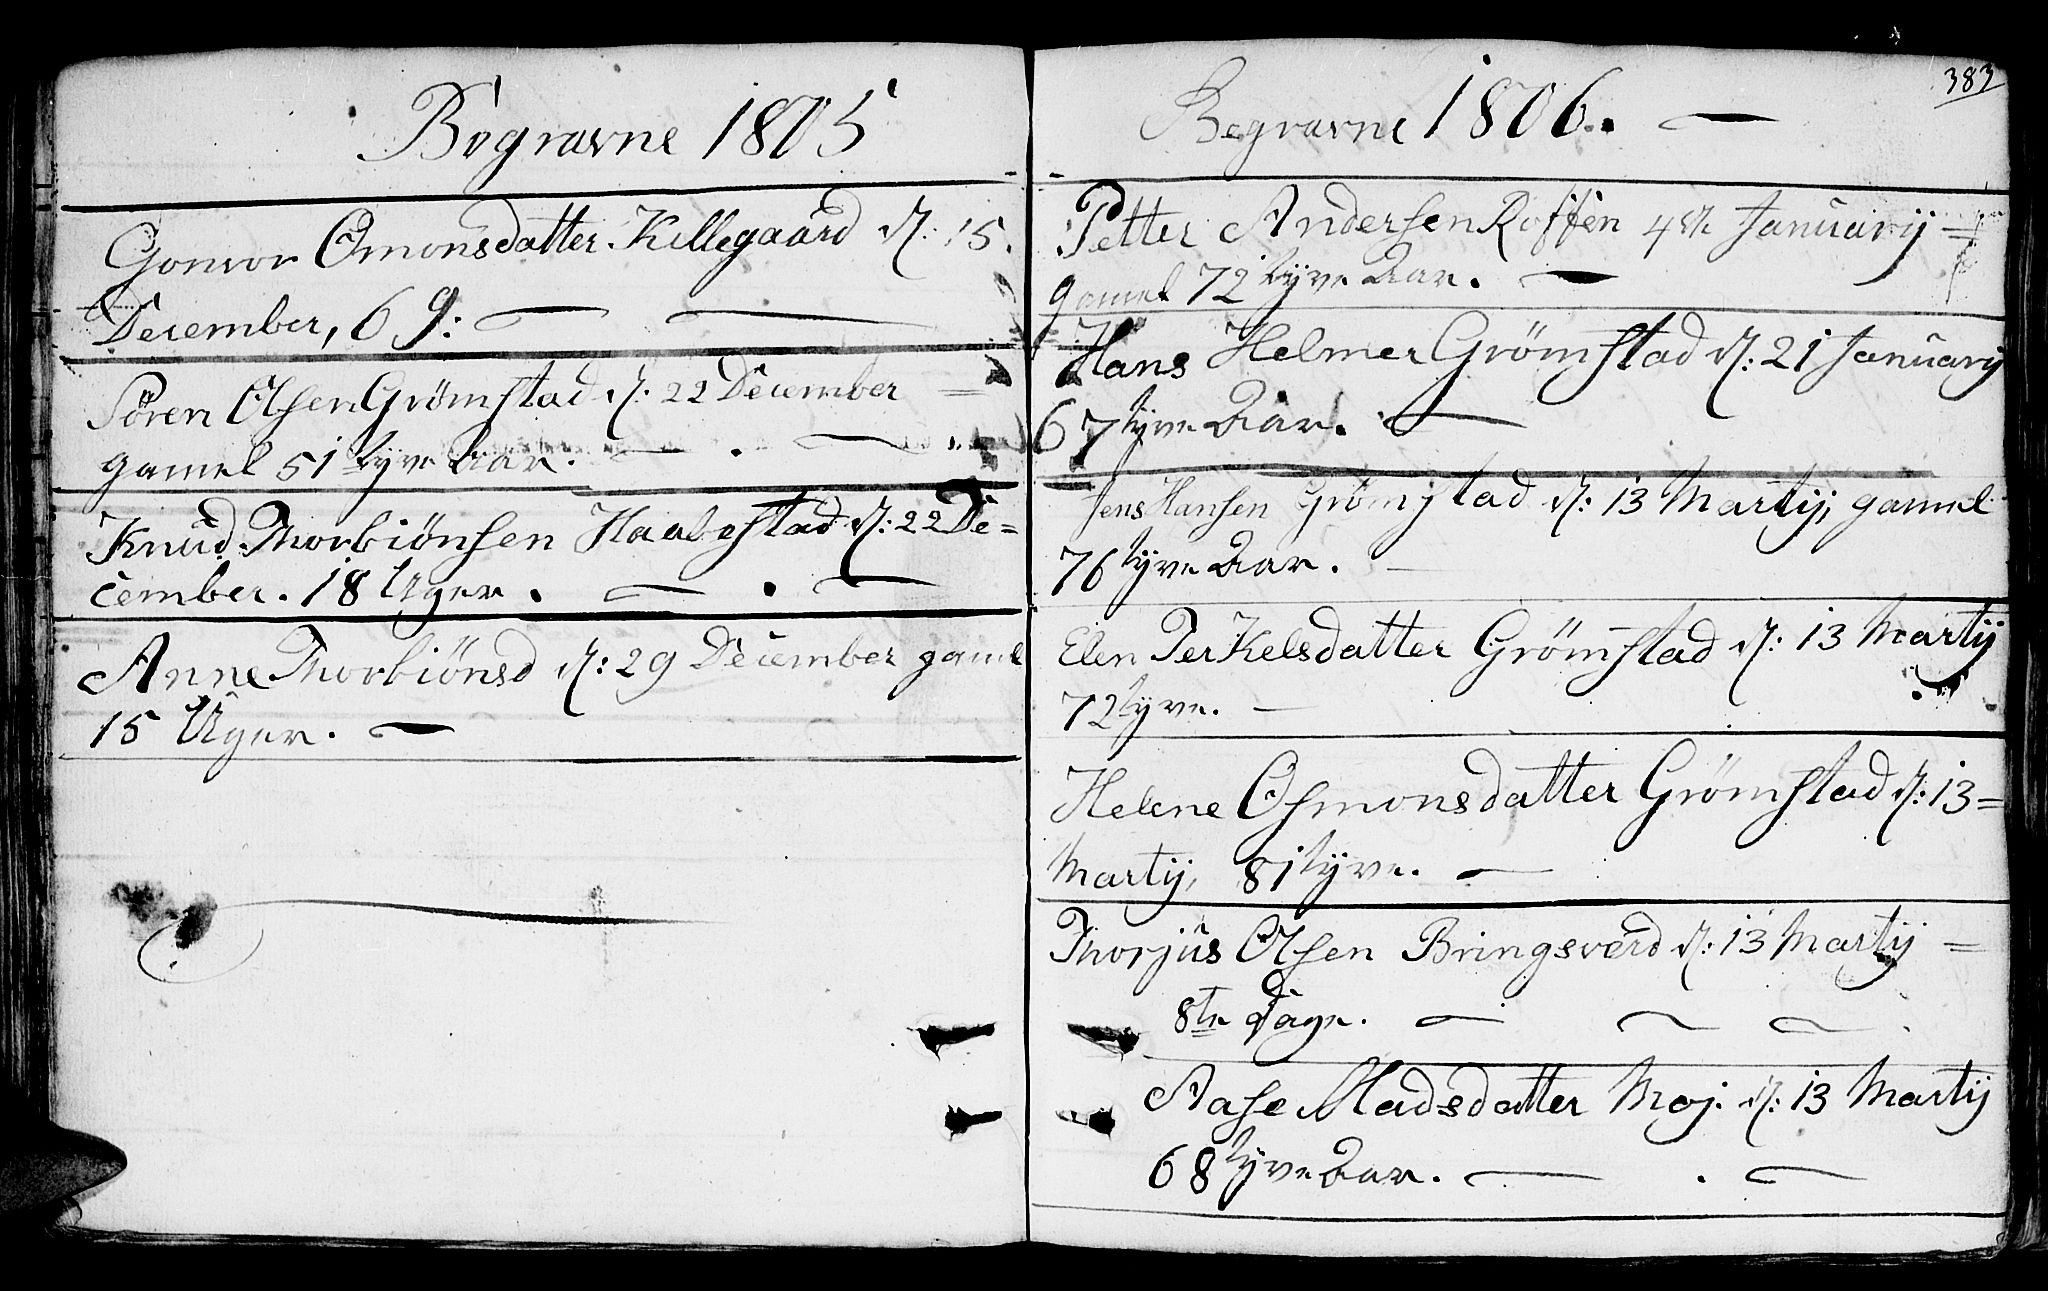 Begravne 1805
Gonvor Omonsdatter Killegaard d: 15
December, 69:
Sören Olsen Grömstad d: 22 December =
gamel 51 tyve Aar.
Knud Thorbiönsen Haabestad d: 22 De=
cember. 18 Uger.
Anne Thorbiönsd d: 29 December gamel
15 Uger.
383
Begravne 1806.
Petter Andersen Roffen 4de Januarij =
gamel 72 tyve Aar.
Hans Helmer Grömstad d: 21 Januarij
67 tyve Aar.
Jens Hansen Grömstad d: 13 Martij, gamel
76 tyve Aar.
Elen Terkelsdatter Grömstad d: 13 Martij
72 tyve.
Helene Osmonsdatter Grömstad d: 13=
Martij, 81 tyve.
Thorjus Olsen Bringsverd d: 13 Martij =
8te Dage.
Aase Madsdatter Moj. d: 13 Martij
68 tyve Aar.